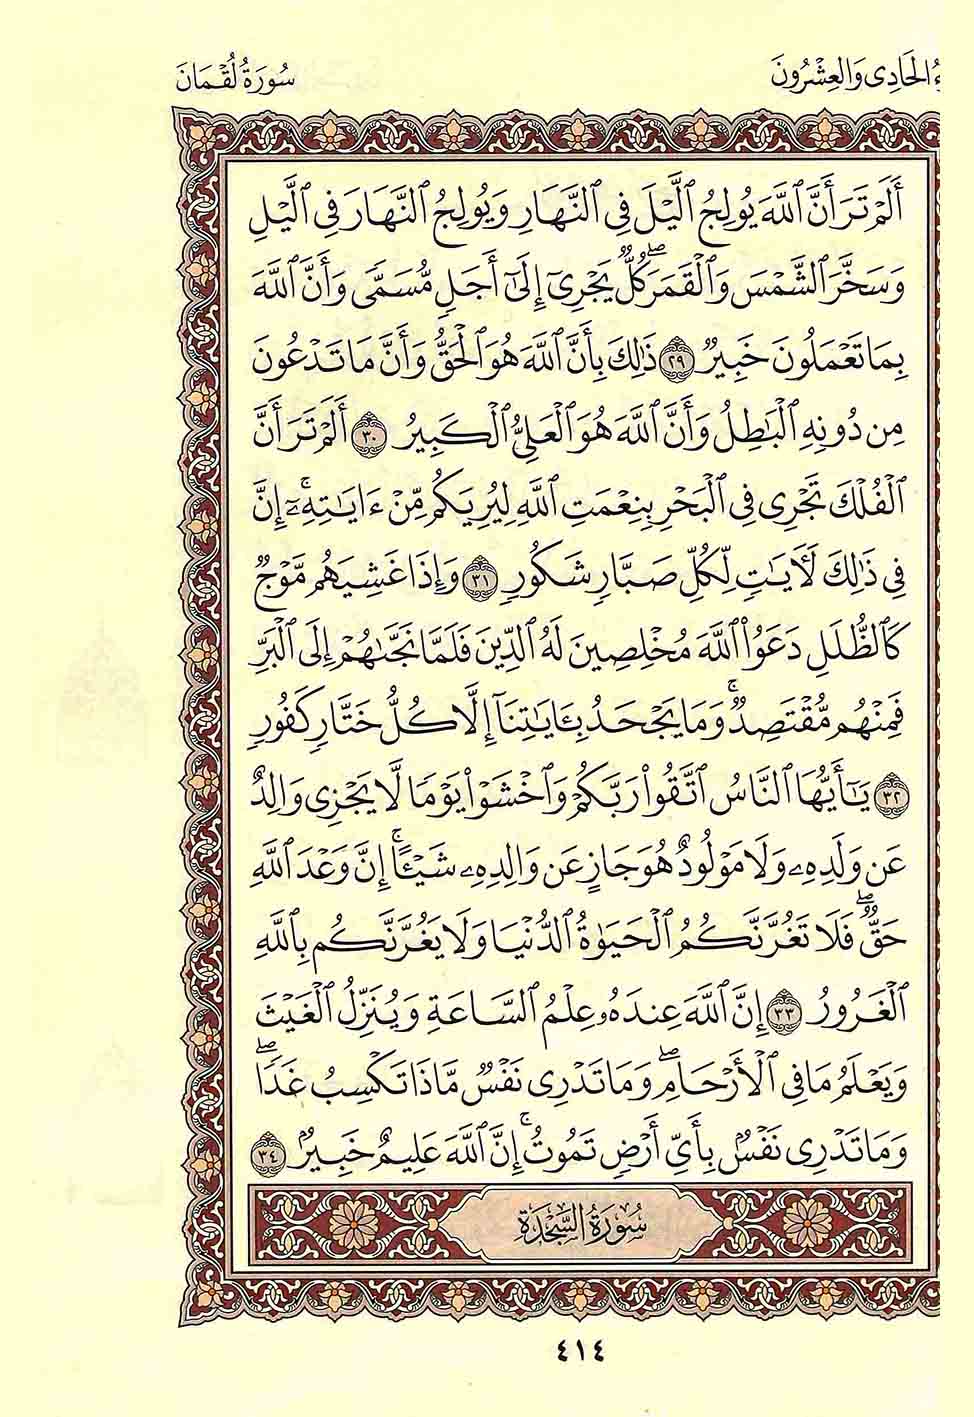 ءُ الْحَادِي وَالْعِشْرُونَ
سُورَةُ لُقْمَانَ
أَلَمْ تَرَ أَنَّ ٱللَّهَ يُولِجُ ٱلَّيْلَ فِى ٱلنَّهَارِ وَيُولِجُ ٱلنَّهَارَ فِى ٱلَّيْلِ
وَسَخَّرَ ٱلشَّمْسَ وَٱلْقَمَرَۖ كُلٌّ يَجْرِىٓ إِلَىٰٓ أَجَلٍ مُّسَمًّى وَأَنَّ ٱللَّهَ
بِمَا تَعْمَلُونَ خَبِيرٌ ٢٩ ذَٰلِكَ بِأَنَّ ٱللَّهَ هُوَ ٱلْحَقُّ وَأَنَّ مَا تَدْعُونَ
مِن دُونِهِ ٱلْبَٰطِلُ وَأَنَّ ٱللَّهَ هُوَ ٱلْعَلِىُّ ٱلْكَبِيرُ ٣٠ أَلَمْ تَرَ أَنَّ
ٱلْفُلْكَ تَجْرِى فِى ٱلْبَحْرِ بِنِعْمَتِ ٱللَّهِ لِيُرِيَكُم مِّنْ ءَايَٰتِهِۦٓۚ إِنَّ
فِى ذَٰلِكَ لَءَايَٰتٍ لِّكُلِّ صَبَّارٍ شَكُورٍ ٣١ وَإِذَا غَشِيَهُم مَّوْجٌ
كَٱلظُّلَلِ دَعَوُا۟ ٱللَّهَ مُخْلِصِينَ لَهُ ٱلدِّينَ فَلَمَّا نَجَّىٰهُمْ إِلَى ٱلْبَرِّ
فَمِنْهُم مُّقْتَصِدٌۚ وَمَا يَجْحَدُ بِـَٔايَٰتِنَآ إِلَّا كُلُّ خَتَّارٍ كَفُورٍ
٣٢ يَٰٓأَيُّهَا ٱلنَّاسُ ٱتَّقُوا۟ رَبَّكُمْ وَٱخْشَوْا۟ يَوْمًا لَّا يَجْزِى وَالِدٌ
عَن وَلَدِهِۦ وَلَا مَوْلُودٌ هُوَ جَازٍ عَن وَالِدِهِۦ شَيْـًٔاۚ إِنَّ وَعْدَ ٱللَّهِ
حَقٌّۖ فَلَا تَغُرَّنَّكُمُ ٱلْحَيَوٰةُ ٱلدُّنْيَا وَلَا يَغُرَّنَّكُم بِٱللَّهِ
ٱلْغَرُورُ ٣٣ إِنَّ ٱللَّهَ عِندَهُۥ عِلْمُ ٱلسَّاعَةِ وَيُنَزِّلُ ٱلْغَيْثَ
وَيَعْلَمُ مَا فِى ٱلْأَرْحَامِۖ وَمَا تَدْرِى نَفْسٌ مَّاذَا تَكْسِبُ غَدًاۖ
وَمَا تَدْرِى نَفْسٌۢ بِأَىِّ أَرْضٍ تَمُوتُۚ إِنَّ ٱللَّهَ عَلِيمٌ خَبِيرٌۢ ٣٤
سُورَةُ السَّجْدَةِ
٤١٤